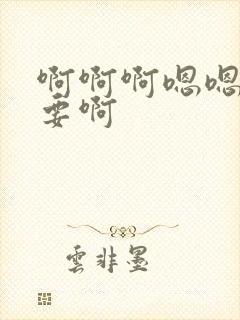 啊啊啊嗯嗯
要啊
雲非墨